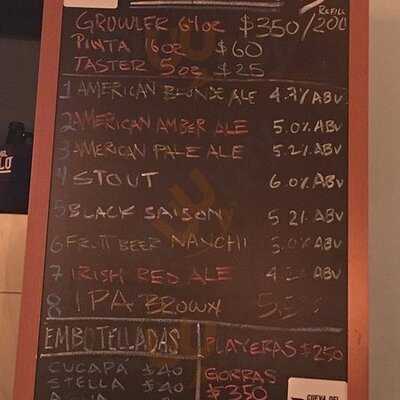 REFILL
GROWLER 64oz $350/200
PINTA 16oz $60
TASTER 5oz $25
1 AMERICAN BLONDE ALE 4.7% ABV
2 AMERICAN AMBER ALE 5.0% ABV
3 AMERICAN PALE ALE 5.2% ABV
4 STOUT 6.0% ABV
5 BLACK SAISON 5.2% ABV
6 FRUIT BEER NANCHI 5.0% ABV
7 IRISH RED ALE ABV
8 IPA BROWN
EMBOTELLADAS
CUCAPÁ $40
STELLA $40
PLAYERAS $250
GORRAS
$350
CUEVA DEL